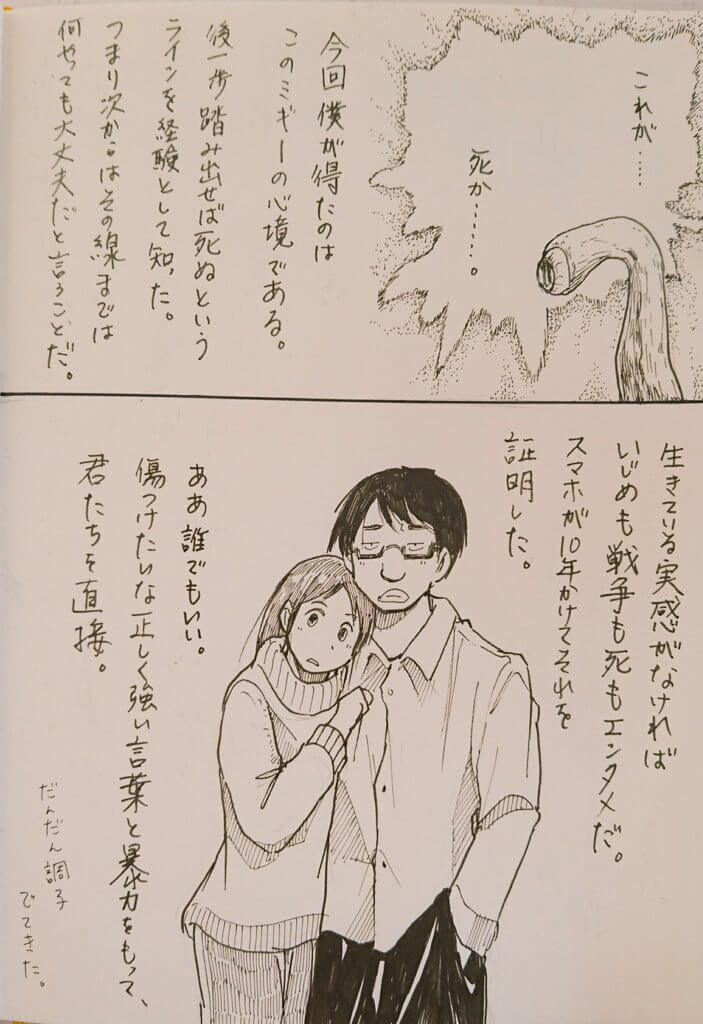 これが……
死か………。
今回僕が得たのは
このミギーの心境である。
後一歩踏み出せば死ぬという
ラインを経験として知った。
つまり次からはその線までは
何やっても大丈夫だと言うことだ。
生きている実感がなければ
いじめも戦争も死もエンタメだ。
スマホが10年かけてそれを
証明した。
ああ誰でもいい。
傷つけたいな正しく強い言葉と暴力をもって、
君たちを直接。
だんだん調子
でてきた。